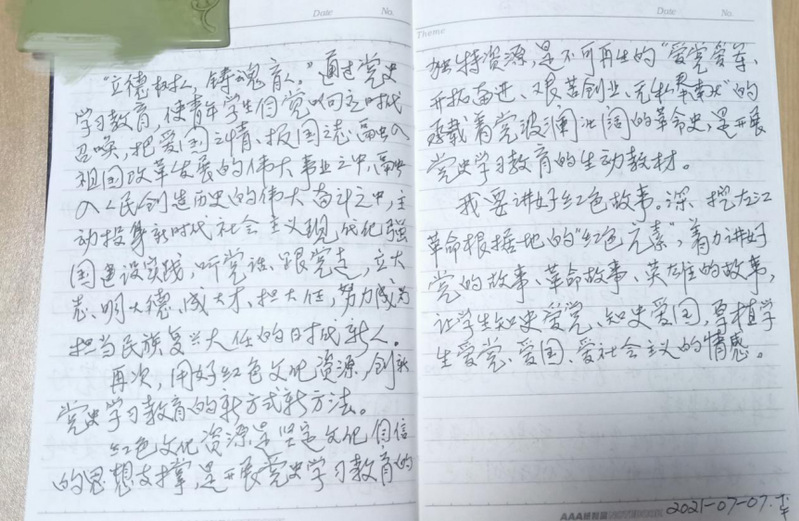 Date No.
"立德树人, 铸魂育人。"通过党史
学习教育, 使青年学生自觉响应时代
召唤, 把爱国之情、报国之志, 融入
祖国改革发展的伟大事业之中, 融
入人民创造历史的伟大奋斗之中, 主
动投身新时代社会主义现代化强
国建设实践, 听党话、跟党走, 立大
志、明大德、成大才、担大任, 努力成为
担当民族复兴大任的时代新人。
再次, 用好红色文化资源, 创新
党史学习教育的新方式新方法。
红色文化资源是坚定文化自信
的思想支撑, 是开展党史学习教育的
Theme
Date No.
独特资源, 是不可再生的"爱党爱军、
开拓奋进、艰苦创业、无私奉献"的
承载着党波澜壮阔的革命史, 是开展
党史学习教育的生动教材。
我要讲好红色故事。深挖左江
革命根据地的"红色元素", 着力讲好
党的故事、革命故事、英雄的故事,
让学生知史爱党、知史爱国, 厚植学
生爱党、爱国、爱社会主义的情感。
2021-07-07.